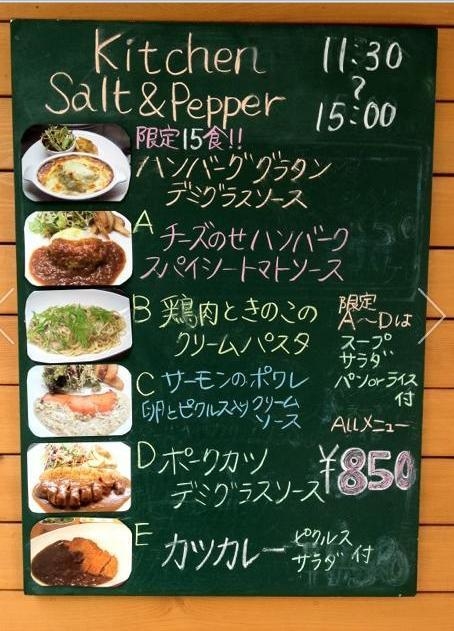 Kitchen
Salt & Pepper
11:30
〜
15:00
限定15食!!
ハンバーググラタン
デミグラスソース
A チーズのせハンバーグ
スパイシートマトソース
B 鶏肉ときのこの
クリームパスタ
C サーモンのポワレ
卵とピクルス入りクリーム
ソース
D ポークカツ
デミグラスソース
E カツカレー
ピクルス
サラダ 付
限定
A〜Dは
スープ
サラダ
パンorライス
付
ALLメニュー
¥850